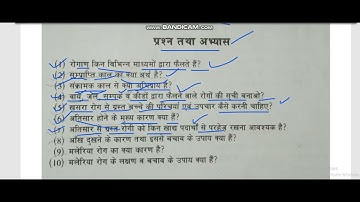 WWW.BANDICAM.COM
प्रश्न तथा अभ्यास
(1) रोगाणु किन विभिन्न माध्यमों द्वारा फैलते हैं?
(2) सम्प्राप्ति काल का क्या अर्थ है?
(3) संक्रामक काल से क्या अभिप्राय है?
(4) वायु, जल, सम्पर्क व कीड़ों द्वारा फैलने वाले रोगों की सूची बनाओ?
(5) खसरा रोग से ग्रस्त बच्चे की परिचर्या एवं उपचार कैसे करनी चाहिए?
(6) अतिसार होने के मुख्य कारण क्या हैं?
(7) अतिसार से ग्रस्त रोगी को किन खाद्य पदार्थों से परहेज रखना आवश्यक है?
(8) आँख दुखने के कारण तथा इससे बचाव के उपाय क्या हैं?
(9) मलेरिया रोग का क्या कारण है?
(10) मलेरिया रोग के लक्षण व बचाव के उपाय क्या हैं?